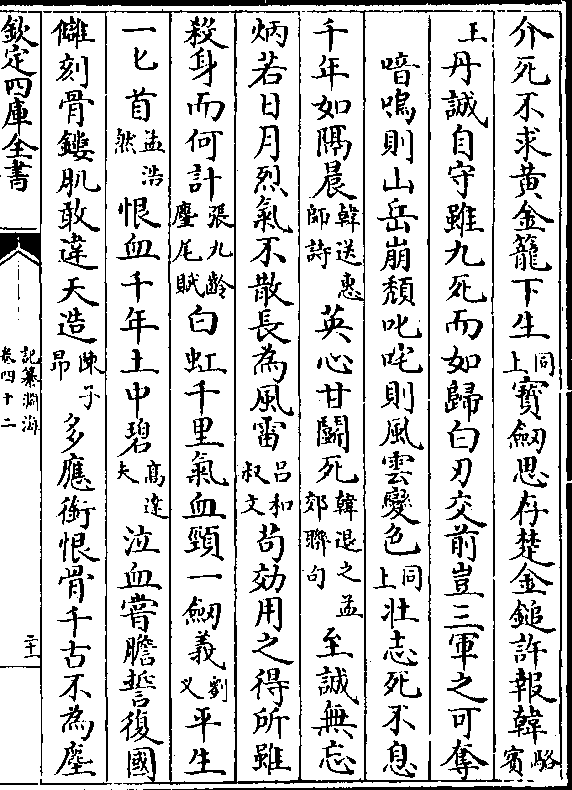 介死不求黄金籠下生同上寳劔思存楚金鎚許報韓駱賓
王丹誠自守雖九死而如歸白刃交前豈三軍之可奪
喑嗚則山岳崩頽叱咤則風雲變色同上壯志死不息
千年如隅晨韓送惠師詩英心甘鬭死韓退之孟郊聯句至誠無忘
炳若日月烈氣不散長為風雷吕和叔文茍効用之得所雖
殺身而何計張九齡塵尾賦白虹千里氣血頸一劔義劉乂平生
一匕首孟浩然恨血千年土中碧髙達夫泣血甞膽誓復國
讎刻骨鏤肌敢違天造陳子昂多應銜恨骨千古不為塵
欽定四庫全書
記纂淵海
卷四十二
二十一